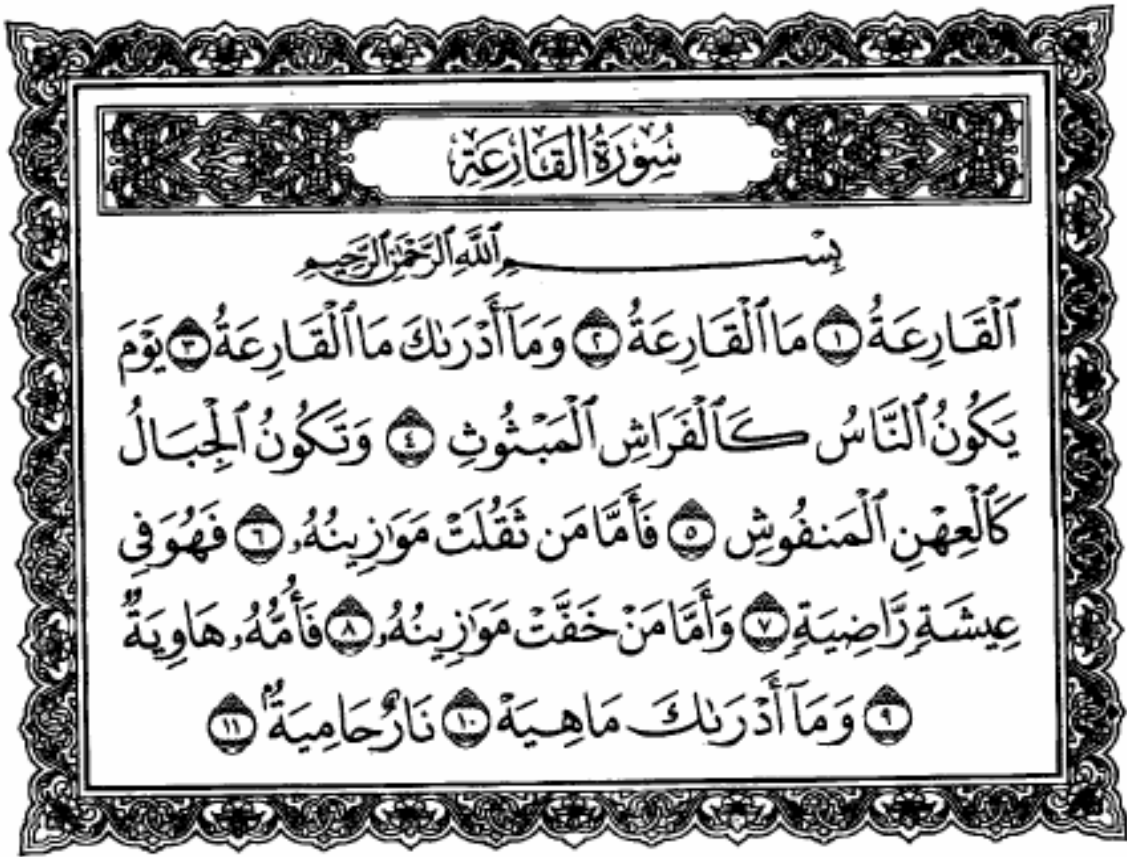 سُورَةُ الْقَارِعَةِ
بِسْمِ ٱللَّهِ ٱلرَّحْمَٰنِ ٱلرَّحِيمِ
ٱلْقَارِعَةُ ١ مَا ٱلْقَارِعَةُ ٢ وَمَآ أَدْرَىٰكَ مَا ٱلْقَارِعَةُ ٣ يَوْمَ
يَكُونُ ٱلنَّاسُ كَٱلْفَرَاشِ ٱلْمَبْثُوثِ ٤ وَتَكُونُ ٱلْجِبَالُ
كَٱلْعِهْنِ ٱلْمَنفُوشِ ٥ فَأَمَّا مَن ثَقُلَتْ مَوَٰزِينُهُۥ ٦ فَهُوَ فِى
عِيشَةٍ رَّاضِيَةٍ ٧ وَأَمَّا مَنْ خَفَّتْ مَوَٰزِينُهُۥ ٨ فَأُمُّهُۥ هَاوِيَةٌ
٩ وَمَآ أَدْرَىٰكَ مَا هِيَهْ ١٠ نَارٌ حَامِيَةٌۢ ١١